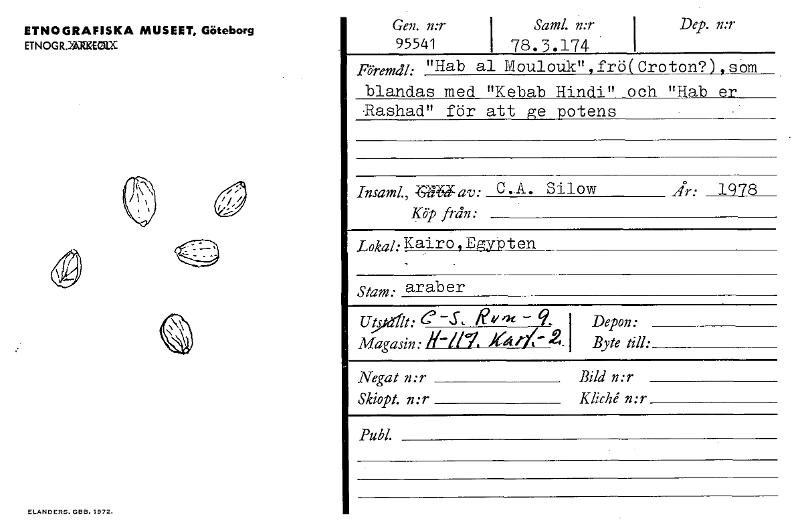 ETNOGRAFISKA MUSEET, Göteborg
ETNOGR. ARKEOL.
Gen. n:r Saml. n:r Dep. n:r
95541 78.3.174
Föremål: "Hab al Moulouk",frö(Croton?),som
blandas med "Kebab Hindi" och "Hab er
Rashad" för att ge potens
Insaml., Gåva av: C.A. Silow År: 1978
Köp från:
Lokal: Kairo,Egypten
Stam: araber
Utställt: C-S. Rum-9. Depon:
Magasin: H-117. Kart.-2. Byte till:
Negat n:r Bild n:r
Skiopt. n:r Kliché n:r
Publ.
ELANDERS. GBG. 1972.